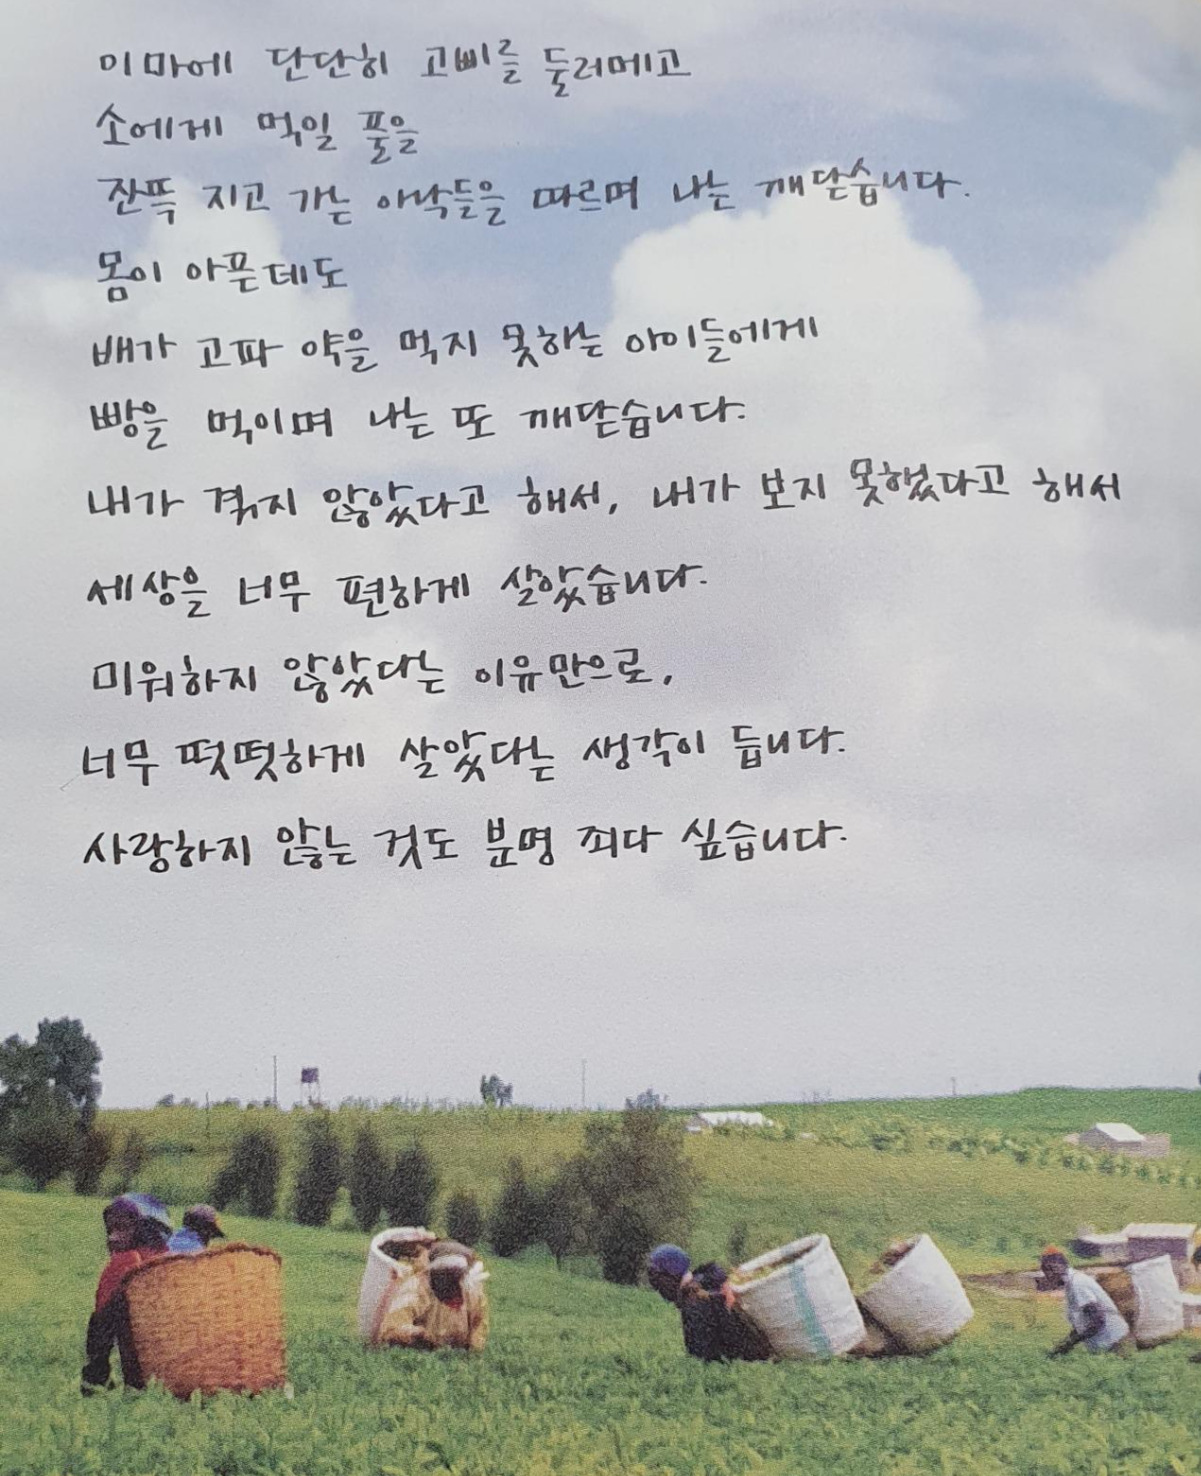 이마에 단단히 고삐를 둘러메고
소에게 먹일 풀을
잔뜩 지고 가는 아낙들을 따르며 나는 깨닫습니다.
몸이 아픈데도
배가 고파 약을 먹지 못하는 아이들에게
빵을 먹이며 나는 또 깨닫습니다.
내가 겪지 않았다고 해서, 내가 보지 못했다고 해서
세상을 너무 편하게 살았습니다.
미워하지 않았다는 이유만으로,
너무 떳떳하게 살았다는 생각이 듭니다.
사랑하지 않는 것도 분명 죄다 싶습니다.